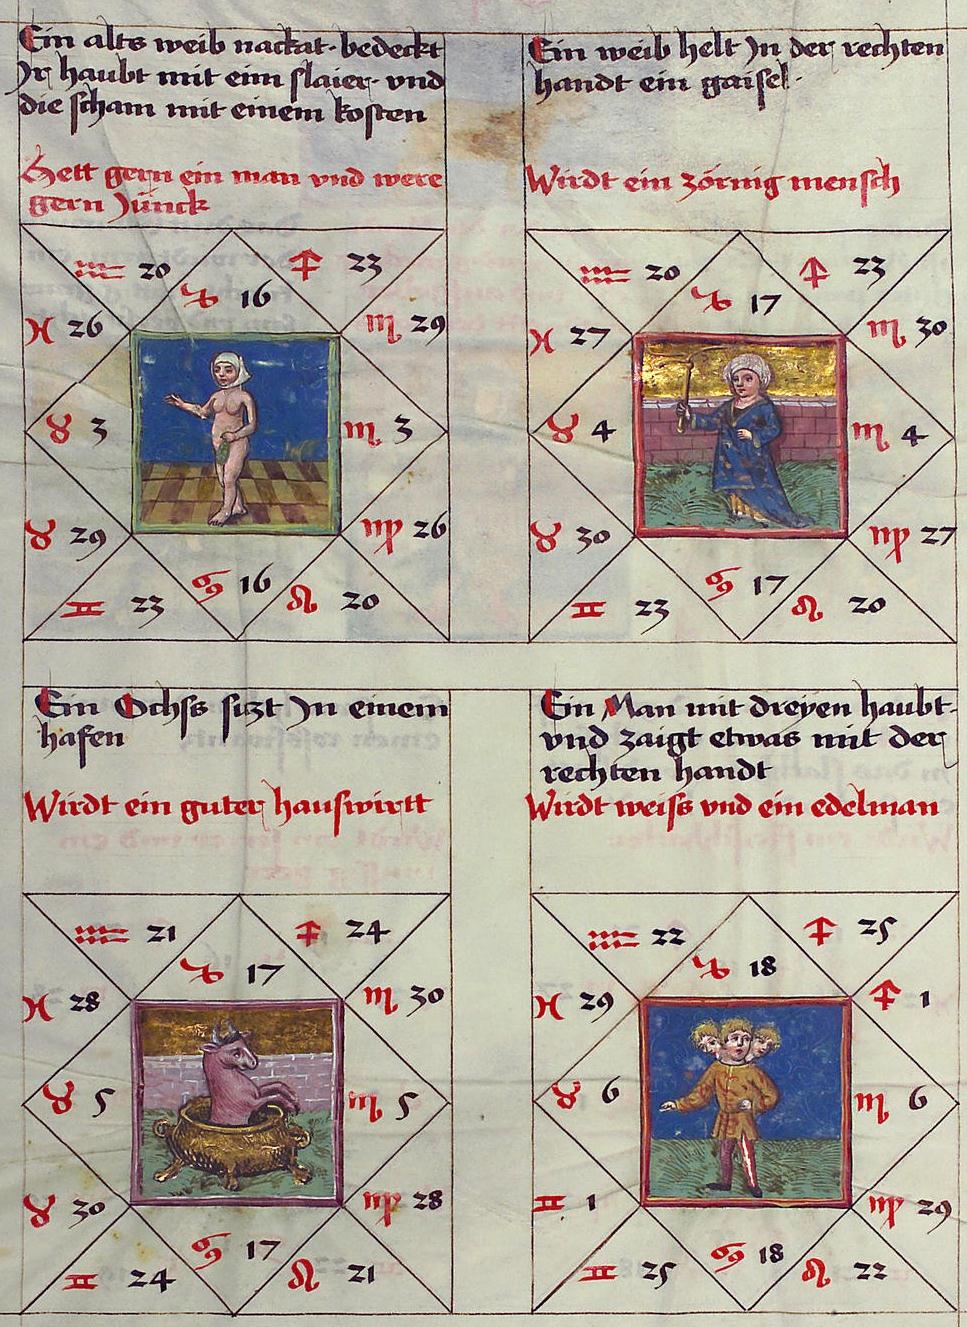 Ein alts weib nackat · bedeckt
Jr haubt mit eim slaier · vnd
die scham mit einem kosten
Hett gern ein man vnd were
gern Jünck
♒ 20
♐ 23
♑ 16
♓ 26
♏ 29
♉ 3
♏ 3
♉ 29
♍ 26
♋ 16
♊ 23
♌ 20
Ein weib helt Jn der rechten
handt ein gaisel ·
Wirdt ein zörnig mensch
♒ 20
♐ 23
♑ 17
♓ 27
♏ 30
♉ 4
♏ 4
♉ 30
♍ 27
♋ 17
♊ 23
♌ 20
Ein Ochss sizt Jn einem
hafen
Wirdt ein guter hauswirtt
♒ 21
♐ 24
♑ 17
♓ 28
♏ 30
♉ 5
♏ 5
♉ 30
♍ 28
♋ 17
♊ 24
♌ 21
Ein Man mit dreyen haubt·
vnd zaigt etwas mit der
rechten handt
Wirdt weiss vnd ein edelman
♒ 22
♐ 25
♑ 18
♓ 29
♐ 1
♉ 6
♏ 6
♊ 1
♍ 29
♋ 18
♊ 25
♌ 22